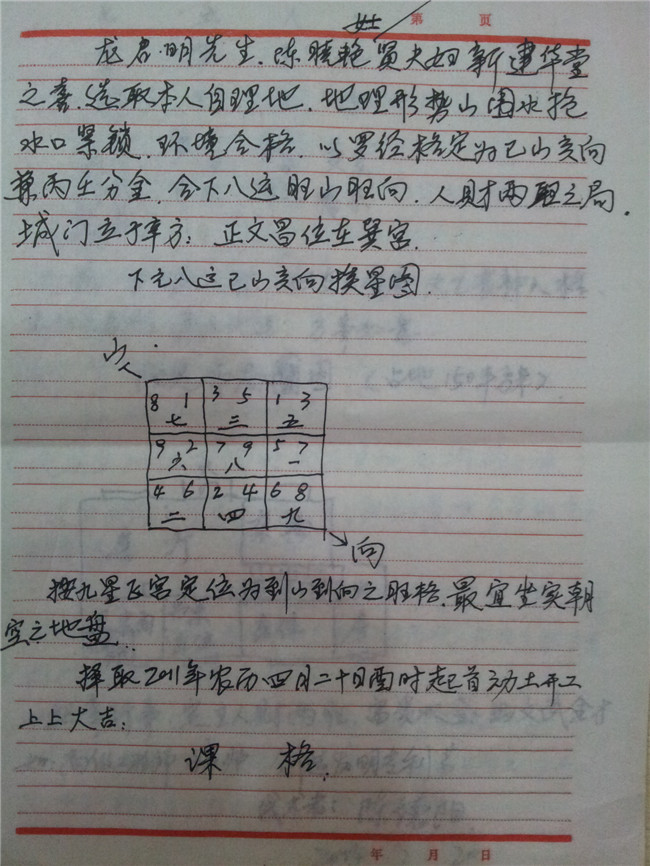 第 页
龙君明先生、陈晓艳贤夫妇新建华堂
之喜,选取本人自理地,地理形势山围水抱
水口紧锁,环境合格,以罗经格定为巳山亥向
兼丙壬分金,合下八运旺山旺向,人财两旺之局,
城门立于辛方;正文昌位在巽宫.
下元八运巳山亥向挨星图.
山
8 1 3 5 1 3
七 三 五
9 2 7 9 5 7
六 八 一
4 6 2 4 6 8
二 四 九
向
按九星飞宫定位为到山到向之旺格,最宜坐实朝
空之地盘.
择取2011年农历四月二十日酉时起首动土开工
上上大吉;
课 格,
年 月 日